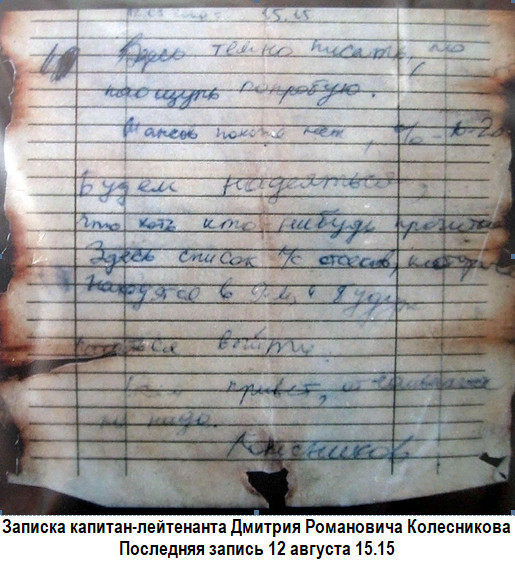 15.15
Здесь темно писать, но
наощупь попробую.
Шансов похоже нет, % – 10-20
Будем надеяться,
что хоть кто нибудь прочитает
Здесь список л/с отсеков, которые
находятся в 9-м и будут
пытаться выйти.
Всем привет, отчаиваться
не надо.
Колесников
Записка капитан-лейтенанта Дмитрия Романовича Колесникова
Последняя запись 12 августа 15.15